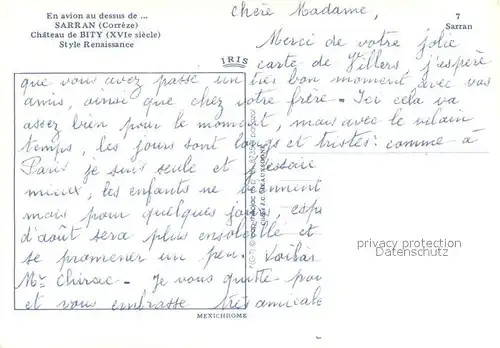 En avion au dessus de ...
SARRAN (Corrèze)
Château de BITY (XVIe siècle)
Style Renaissance
7
Sarran
IRIS
Chère Madame,
Merci de votre jolie
carte de Villers j'espère
que vous avez passé un très bon moment avec vos
amis, ainsi que chez votre frère - Ici cela va
assez bien pour le moment, mais avec le vilain
temps, les jours sont longs et tristes : comme à
Paris je suis seule et j'essaie
mieux, les enfants ne
mais pour quelques jours,
d'août sera plus ensoleillé et
se promener un peu.
Mr Chirac - Je vous quitte
et vous embrasse très
MEXICHROME
privacy protection
Datenschutz